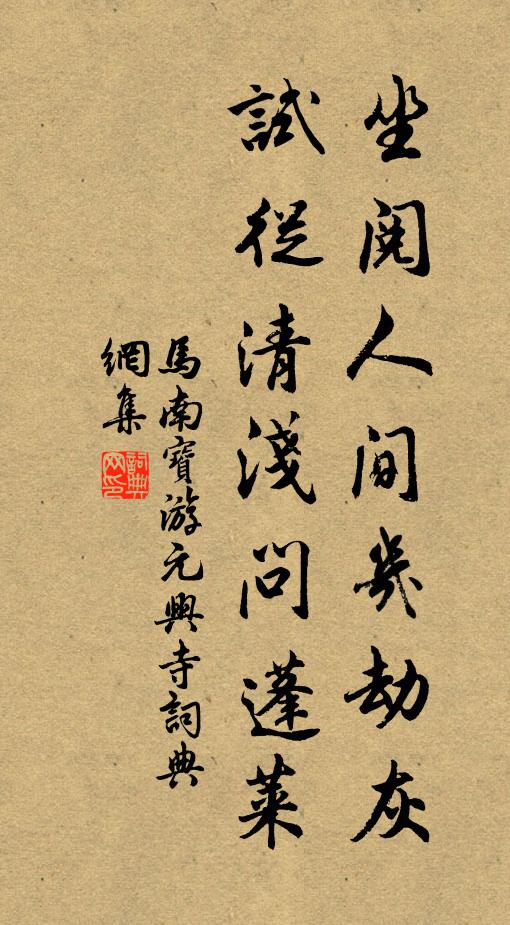 坐閱人間幾劫灰
試從清淺問蓬萊
馬南寶游元興寺詞典
網集
詞典網印